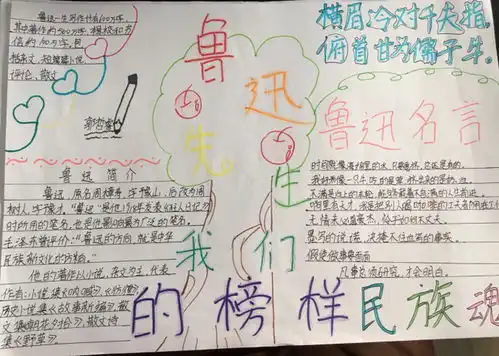 鲁迅一生写作计有600万字,
其中著作约500万字,辑校和书
信约100万字。
杂文,短篇小说,
评论,散文
横眉冷对千夫指,
俯首甘为孺子牛。
鲁迅
先生
我们
的榜样民族魂
鲁迅名言
鲁迅简介
鲁迅,原名周樟寿,后改为周
树人,字豫才,“鲁迅”是他1918年发表《狂人日记》
时所用的笔名,也是他影响最为广泛的笔名。
毛泽东曾评价:“鲁迅的方向,就是中华
民族新文化的方向。”
他的著作以小说、杂文为主,代表
作有:小说集《呐喊》、《彷徨》
历史小说集《故事新编》,散
文集《朝花夕拾》,散文诗
集《野草》
时间就像海绵里的水,只要愿挤,总还是有的。
我好像一只牛,吃的是草,挤出来的是奶、血。
不满是向上的车轮,
哪里有天才,我是把别人喝咖啡的工夫都用在工作
无情未必真豪杰,怜子如何不丈夫。
墨写的谎说,决掩不住血写的事实。
凡事总须研究,才会明白。